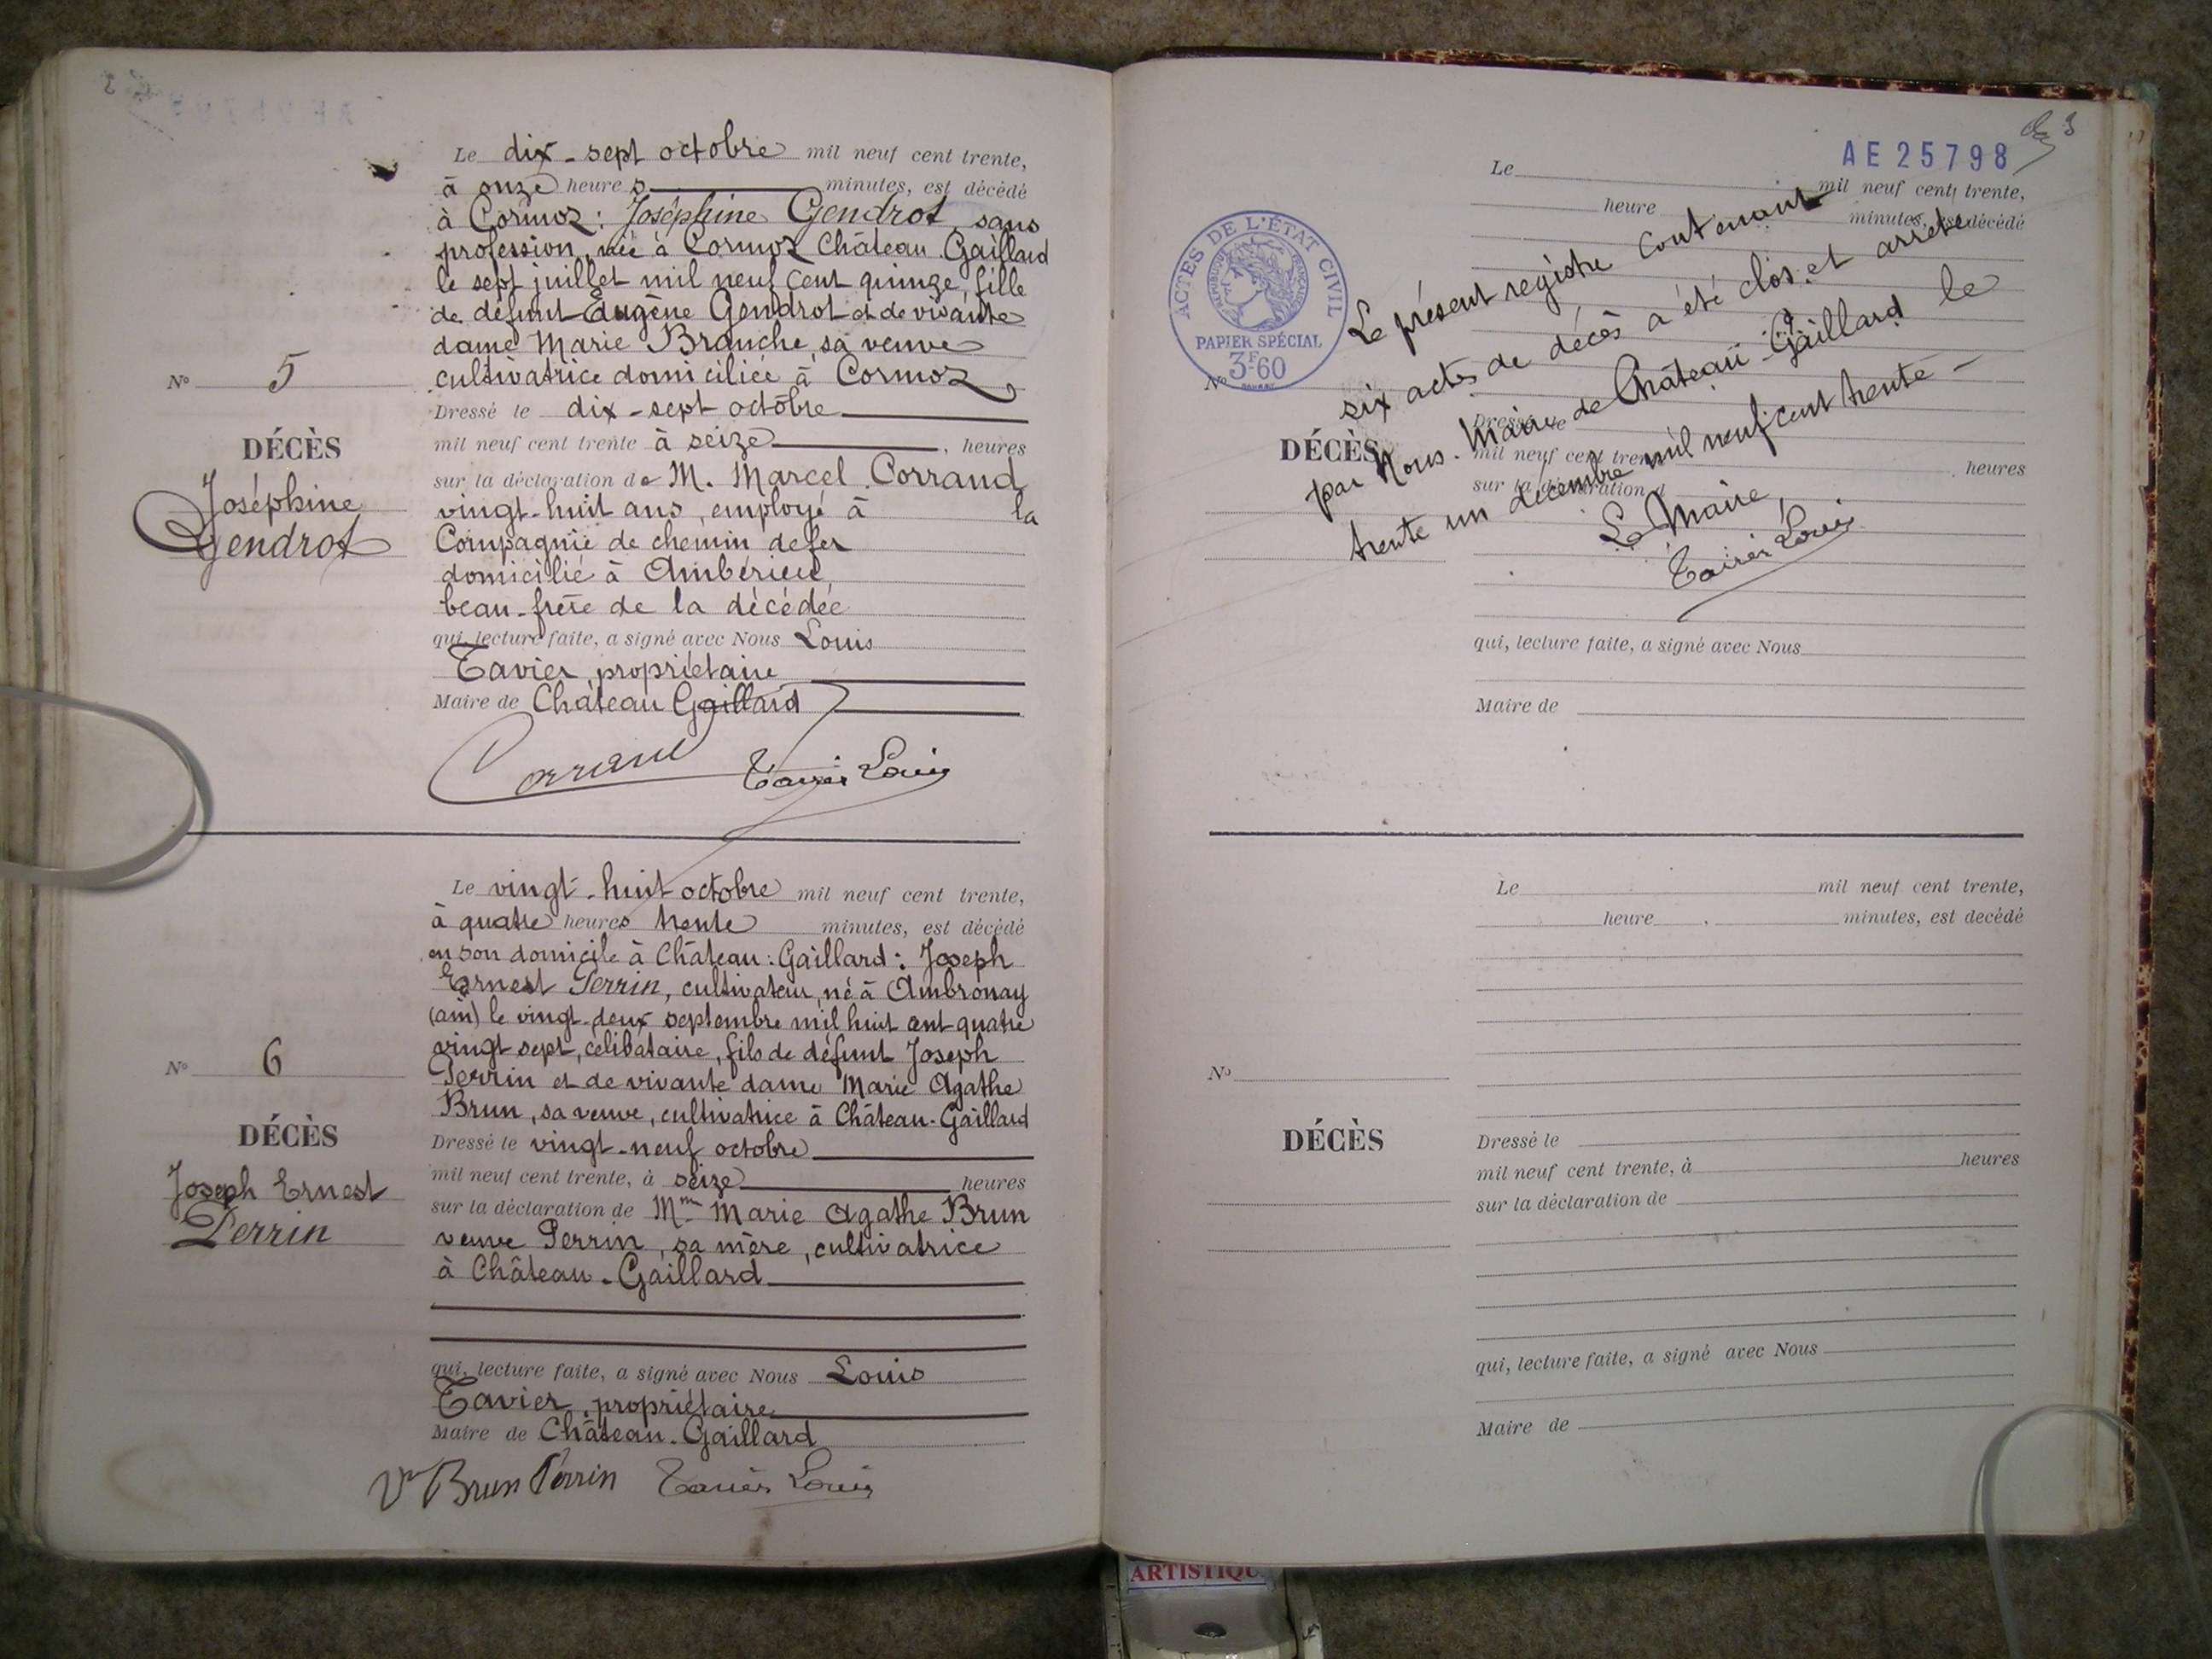 Le dix-sept octobre mil neuf cent trente,
à onze heures minutes, est décédé
à Cormoz : Joséphine Gendrot, sans
profession, née à Cormoz Château Gaillard
le sept juillet mil neuf cent quinze, fille
de défunt Eugène Gendrot et de vivante
dame Marie Branche, sa veuve
cultivatrice domiciliée à Cormoz
Dressé le dix-sept octobre
mil neuf cent trente à seize, heures
sur la déclaration de M. Marcel Corraud
vingt-huit ans, employé à la
Compagnie de chemin de fer
domicilié à Ambérieu,
beau-frère de la décédée
qui, lecture faite, a signé avec Nous Louis
Tavier, propriétaire
Maire de Château Gaillard
Corraud Tavier Louis
No 5
DÉCÈS
Joséphine
Gendrot
Le vingt-huit octobre mil neuf cent trente,
à quatre heures trente minutes, est décédé
en son domicile à Château-Gaillard : Joseph
Ernest Perrin, cultivateur, né à Ambronay
(ain) le vingt-deux septembre mil huit cent quatre
vingt sept, célibataire, fils de défunt Joseph
Perrin et de vivante dame Marie Agathe
Brun, sa veuve, cultivatrice à Château-Gaillard
Dressé le vingt-neuf octobre
mil neuf cent trente, à seize heures
sur la déclaration de Mme Marie Agathe Brun
veuve Perrin, sa mère, cultivatrice
à Château-Gaillard
qui, lecture faite, a signé avec Nous Louis
Tavier, propriétaire
Maire de Château-Gaillard
Ve Brun Perrin Tavier Louis
No 6
DÉCÈS
Joseph Ernest
Perrin
3
AE 25798
Le mil neuf cent trente,
heure minutes, est décédé
ACTES DE L'ÉTAT CIVIL
RÉPUBLIQUE FRANÇAISE
PAPIER SPÉCIAL
3F60
No
DÉCÈS
Le présent registre contenant
six actes de décès a été clos et arrêté
par Nous. Maire de Château-Gaillard le
trente un décembre mil neuf cent trente -
Le Maire,
Tavier Louis
Dressé le
mil neuf cent trente heures
sur la déclaration d
qui, lecture faite, a signé avec Nous
Maire de
Le mil neuf cent trente,
heure minutes, est decédé
No
DÉCÈS
Dressé le
mil neuf cent trente, à heures
sur la déclaration de
qui, lecture faite, a signé avec Nous
Maire de
ARTISTIQU